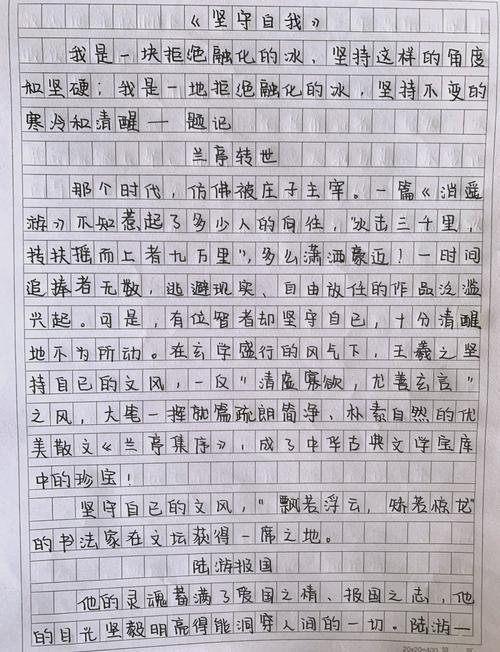 《坚守自我》
我是一块拒绝融化的冰，坚持这样的角度
和坚硬；我是一地拒绝融化的冰，坚持不变的
寒冷和清醒一 题记
兰亭转世
那个时代，仿佛被庄子主宰。一篇《逍遥
游》不知惹起了多少人的向往，"水击三千里，
抟扶摇而上者九万里"，多么潇洒豪迈！一时间
追捧者无数，逃避现实、自由放任的作品泛滥
兴起。可是，有位智者却坚守自己，十分清醒
地不为所动。在玄学盛行的风气下，王羲之坚
持自己的文风，一反"清虚寡欲，尤善玄言"
之风，大笔一挥就篇疏朗简净、朴素自然的优
美散文《兰亭集序》，成了中华古典文学宝库
中的珍宝！
坚守自己的文风，"飘若浮云，矫若惊龙"
的书法家在文坛获得一席之地。
陆游报国
他的灵魂蓄满了爱国之情、报国之志，他
的目光坚毅明亮得能洞穿人间的一切。陆游一
20×20=400